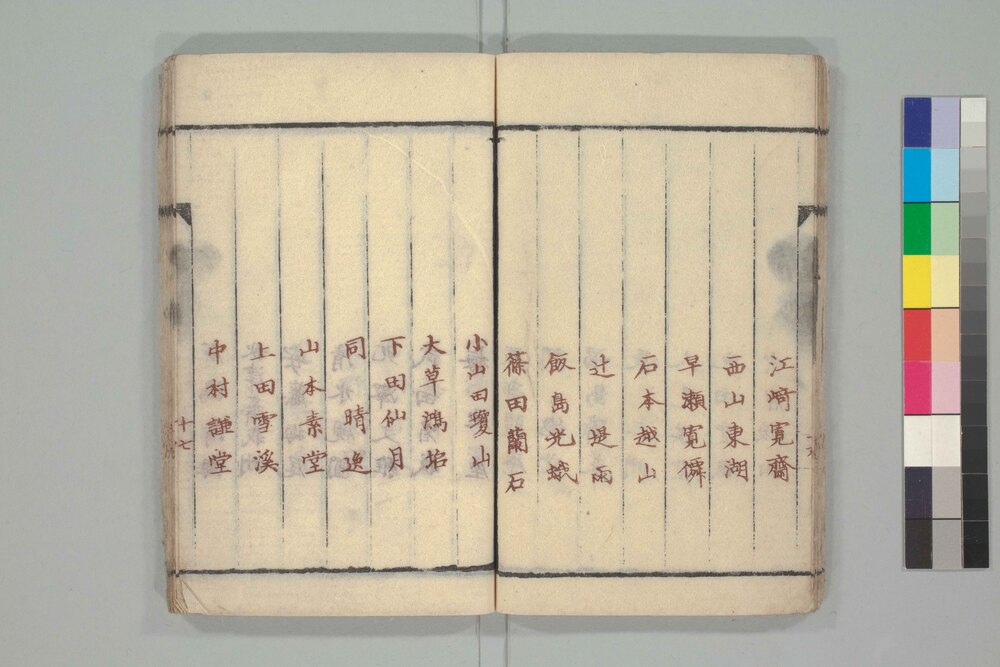 江﨑寛齋
西山東湖
早瀬寛僲
石本越山
辻堤雨
飯島光蛾
篠田蘭石
小山田瓊山
大草鴻
下田仙月
同晴逸
山本素堂
上田雪溪
中村謙堂
十七